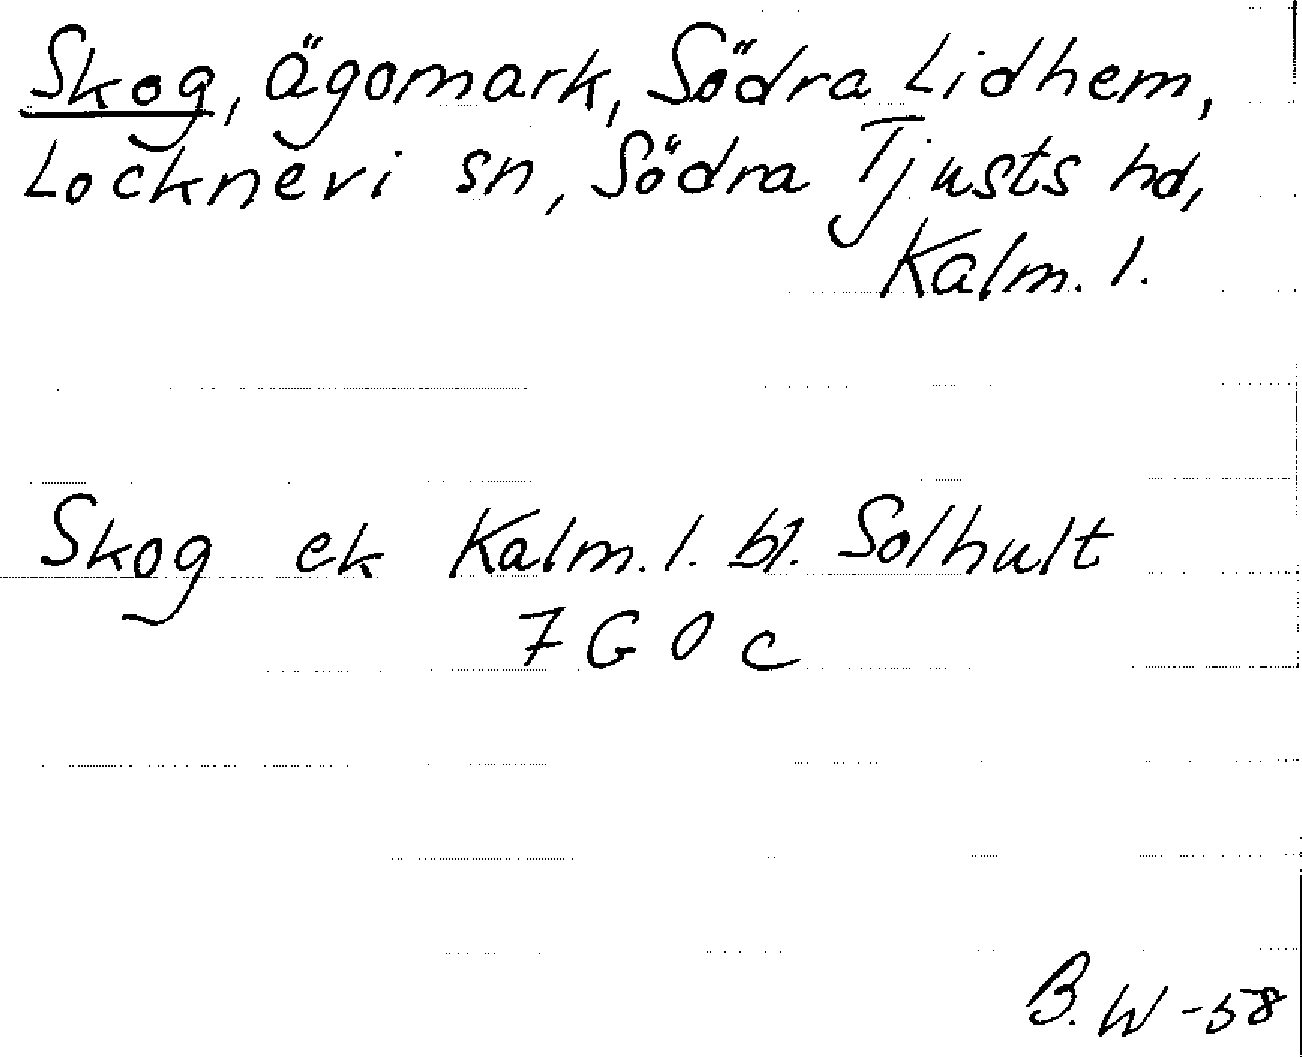 Skog, ägomark, Södra Lidhem,
Locknevi sn, Södra Tjusts hd,
Kalm. l.
Skog ek Kalm. l. bl. Solhult
7 G 0 c
B. W -58